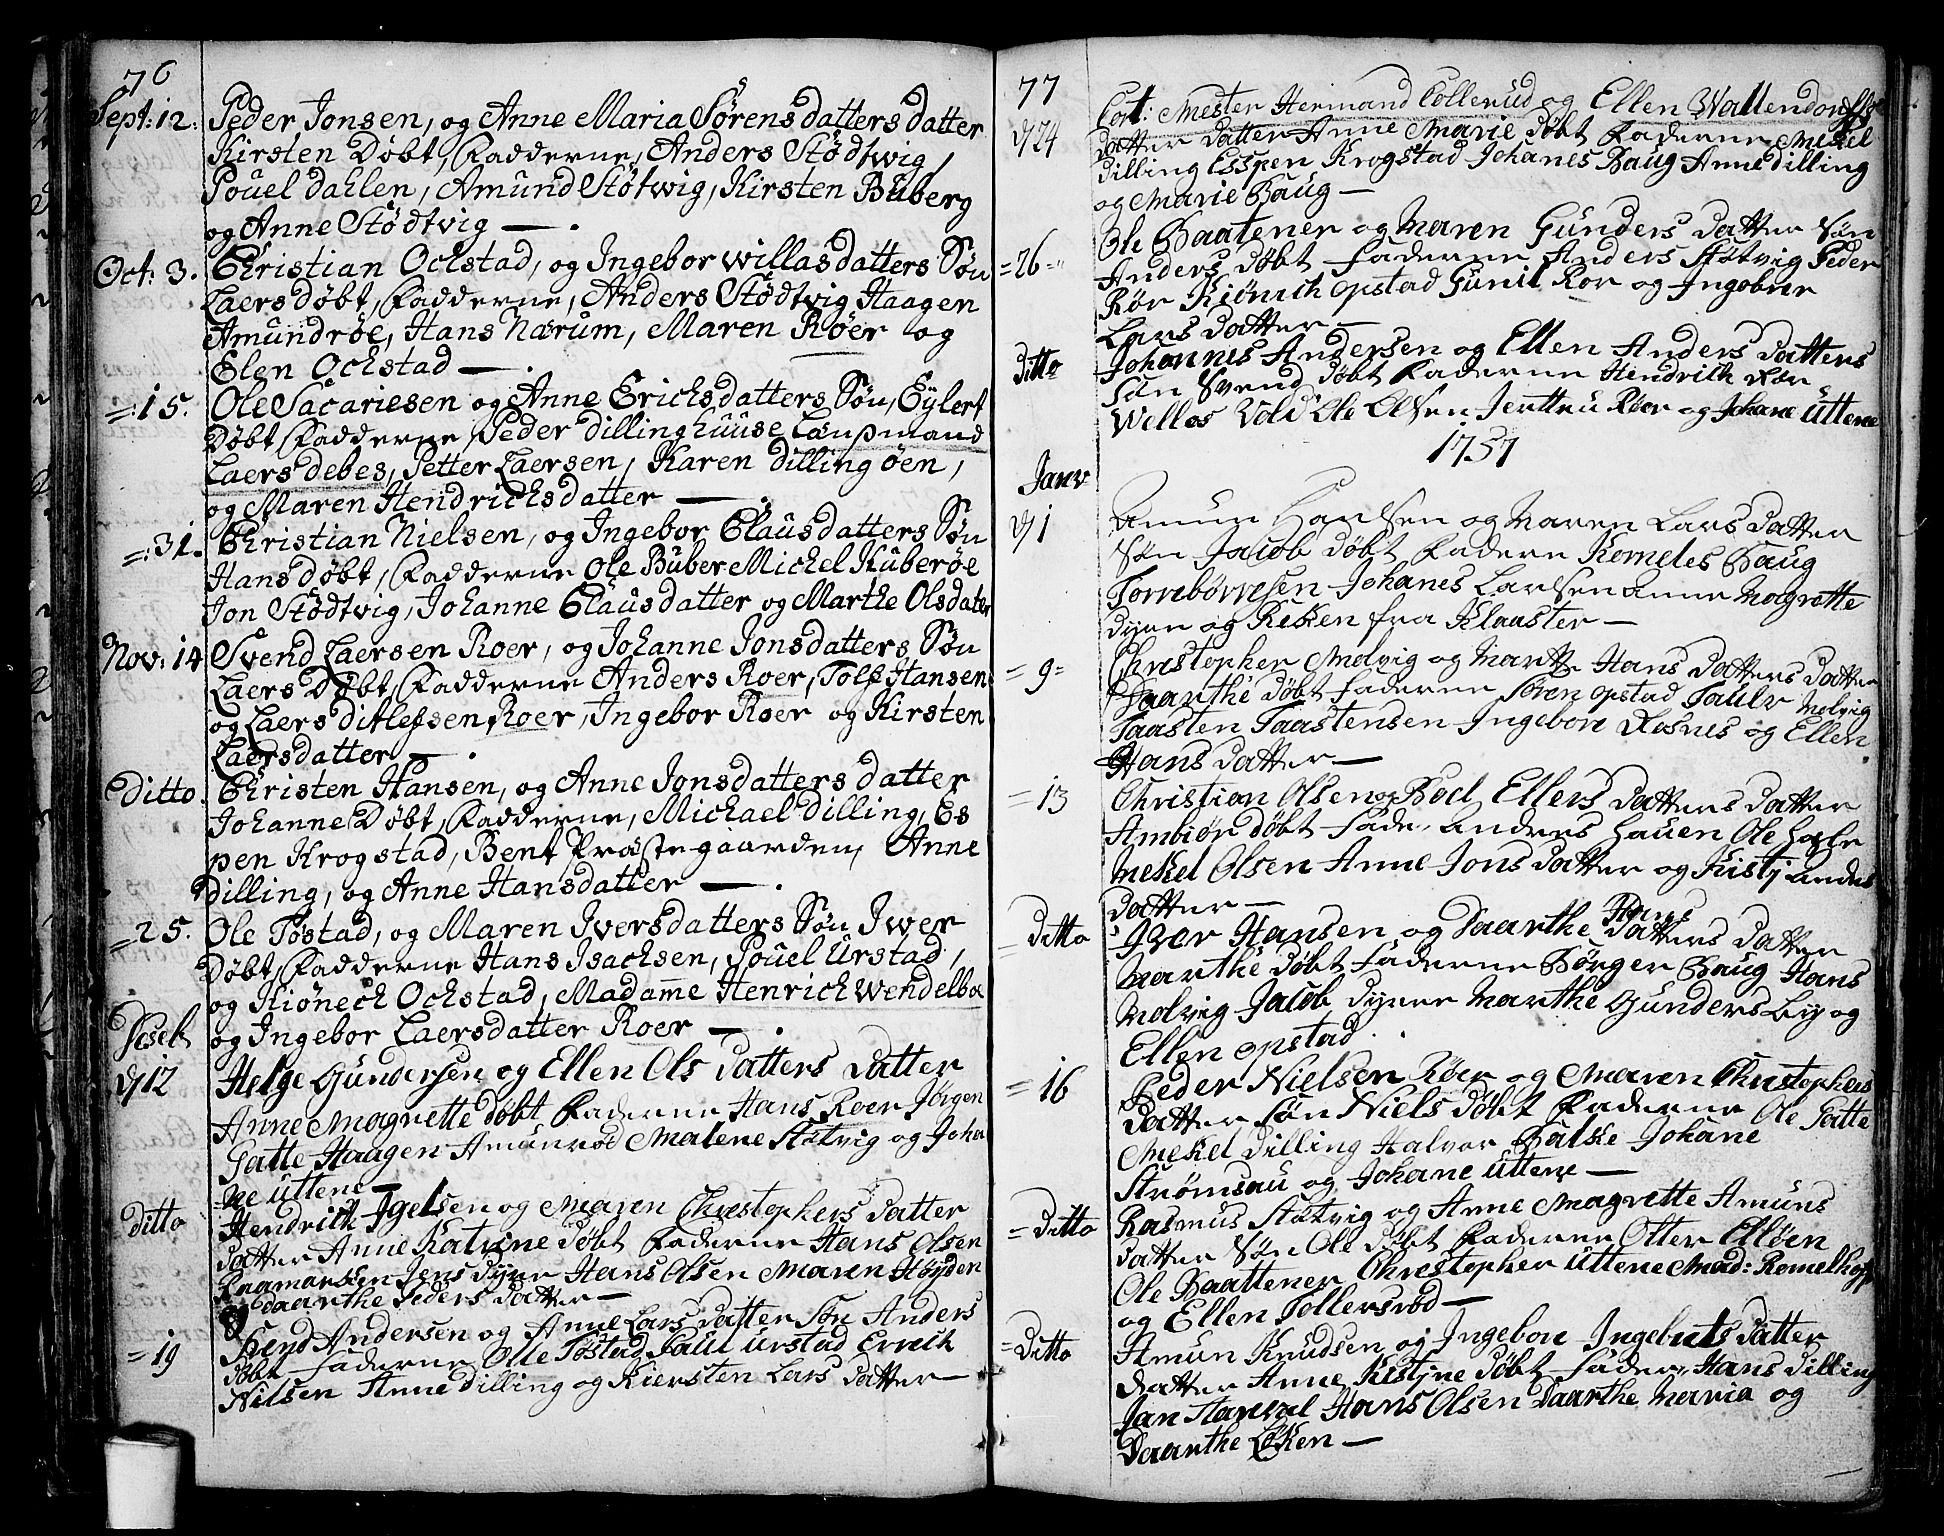 76
Sept: 12. Peder Jonsen, og Anne Maria Sørensdatters datter
Kirsten Døbt, Fadderne, Anders Stødtwig,
Pouel dahlen, Amund Støtwig, Kirsten Buberg
og Anne Stødtvig — .
Oct: 3. Christian Ochstad, og Ingebor willasdatters Søn
Laers døbt, Fadderne, Anders Stødtvig Haagen
Amundrøe, Hans Nærum, Maren Røer og
Elen Ochstad — .
=:15. Ole Sacariesen og Anne Erichsdatters Søn, Eylert
Døbt, Fadderne Peder dillinghuuse Lænsmand
Laers debes, Petter Laersen, Karen dillingøen,
og Maren Hendrichsdatter — .
=:31. Christian Nielsen, og Ingebor Clausdatters Søn
Hans døbt, Fadderne Ole Buber Michel Kuberøe
Jon Stødtvig, Johanne Clausdatter og Marthe Olsdater
Nov: 14 Svend Laersen Roer, og Johanne Jonsdatters Søn
Laers Døbt, Fadderne Anders Roer, Tolf Hansen
og Laers ditlefsen Roer, Ingebor Roer og Kirsten
Laersdatter — .
Ditto. Christen Hansen, og Anne Jonsdatters datter
Johanne Døbt, Fadderne, Michael Dilling, Es
pen Krogstad, Bent Præstegaarden, Anne
dilling, og Anne Hansdatter — .
=25. Ole Tøstad, og Maren Iversdatters Søn Iwer
Døbt, Fadderne Hans Isachsen, Pouel Urstad,
og Kiønech Ochstad, Madame Henrich Wendelboe
og Ingebor Laersdatter Roer — .
Deseb
d/12 Helge Gundersen og Ellen Ols datters datter
Anne Magrette døbt Faderne Hans Roer Jørgen
Gatte Haagen Amunrød Malene Støtvig og Joha
ne Uttene —
Ditto Hendrich Igelsen og Maren Christophers datter
datter Anne Katrine døbt Faderne Hans Olsen
Jens Dyre Hans Olsen Maren Høyden
Daarthe Peders datter —
=19 Svend Andersen og Anne Lars datter Søn Anders
døbt Faderne Olle Tøstad Paul Urstad Errich
Nilsen Anne Dilling og Kiersten Lars datter —
77
Cort: Mester Hermand Collerud og Ellen Wallendorffs
d/24 datter datter Anne Marie døbt Faderne Mikel
Dilling Esspen Krogstad Johanes Haug Anne Dilling
og Marie Haug —
=26= Ole Baatener og Maren Gunders datter Søn
Anders døbt Faderne Anders Støtvig Peder
Rør Kiønich opstad Gunil Ror og Ingobrer
Lars datter —
Ditto Johannes Andersen og Ellen Anders datters
Søn Svend døbt Faderne Hendrich Rør
Wellas Eld Ole Olsen Jerttru Røer og Johane Uttene
1757
Janv
d/1 Amun Hansen og Maren Lars datter
Søn Jacob døbt Fadern Korneles Haug
Torrebørresen Johanes Larsen Anne Magrette
dyre og Reken fra Klaaster —
=9= Christopher Melvig og Marte Hans datters datter
Daarthe døbt Faderne Sören opstad Pauler Melvig
Taasten Taastensen Ingebore Røsnes og Ellen
Hans datter —
=13 Christian Olsen og Boel Ellers datters datter
Ambiør døbt fade. Anders Hauen Ole Hale
Mekel Olsen Anne Jons datter og Kistj Anders
datter —
=Ditto Iver Hansen og Daarthe Hans datters datter
Marthe døbt Faderne Børger Haug Hans
Melvig Jacob dyrer Marthe Gunders by og
Ellen opstad .
=16 Peder Nielsen Røer og Maren Christophers
datter Søn Niels døbt Faderne Ole Gatte
Mekel Dilling Halvor Balke Johane
Strømsau og Johane Uttene —
=Ditto Rasmus Støtvig og Anne Magrette Amuns
datter Søn Ole døbt Faderne Otter Elløen
Ole Baattener Christopher Uttene Mad: Romelhoff
og Ellen Tollersrød —
=Ditto Amun Knudsen og Ingebore Ingebrets datter
datter Anne Kistjne døbt Fader, Hans Dilling
Jan Hans Olsen Daarthe Maria og
Daarthe Løken —